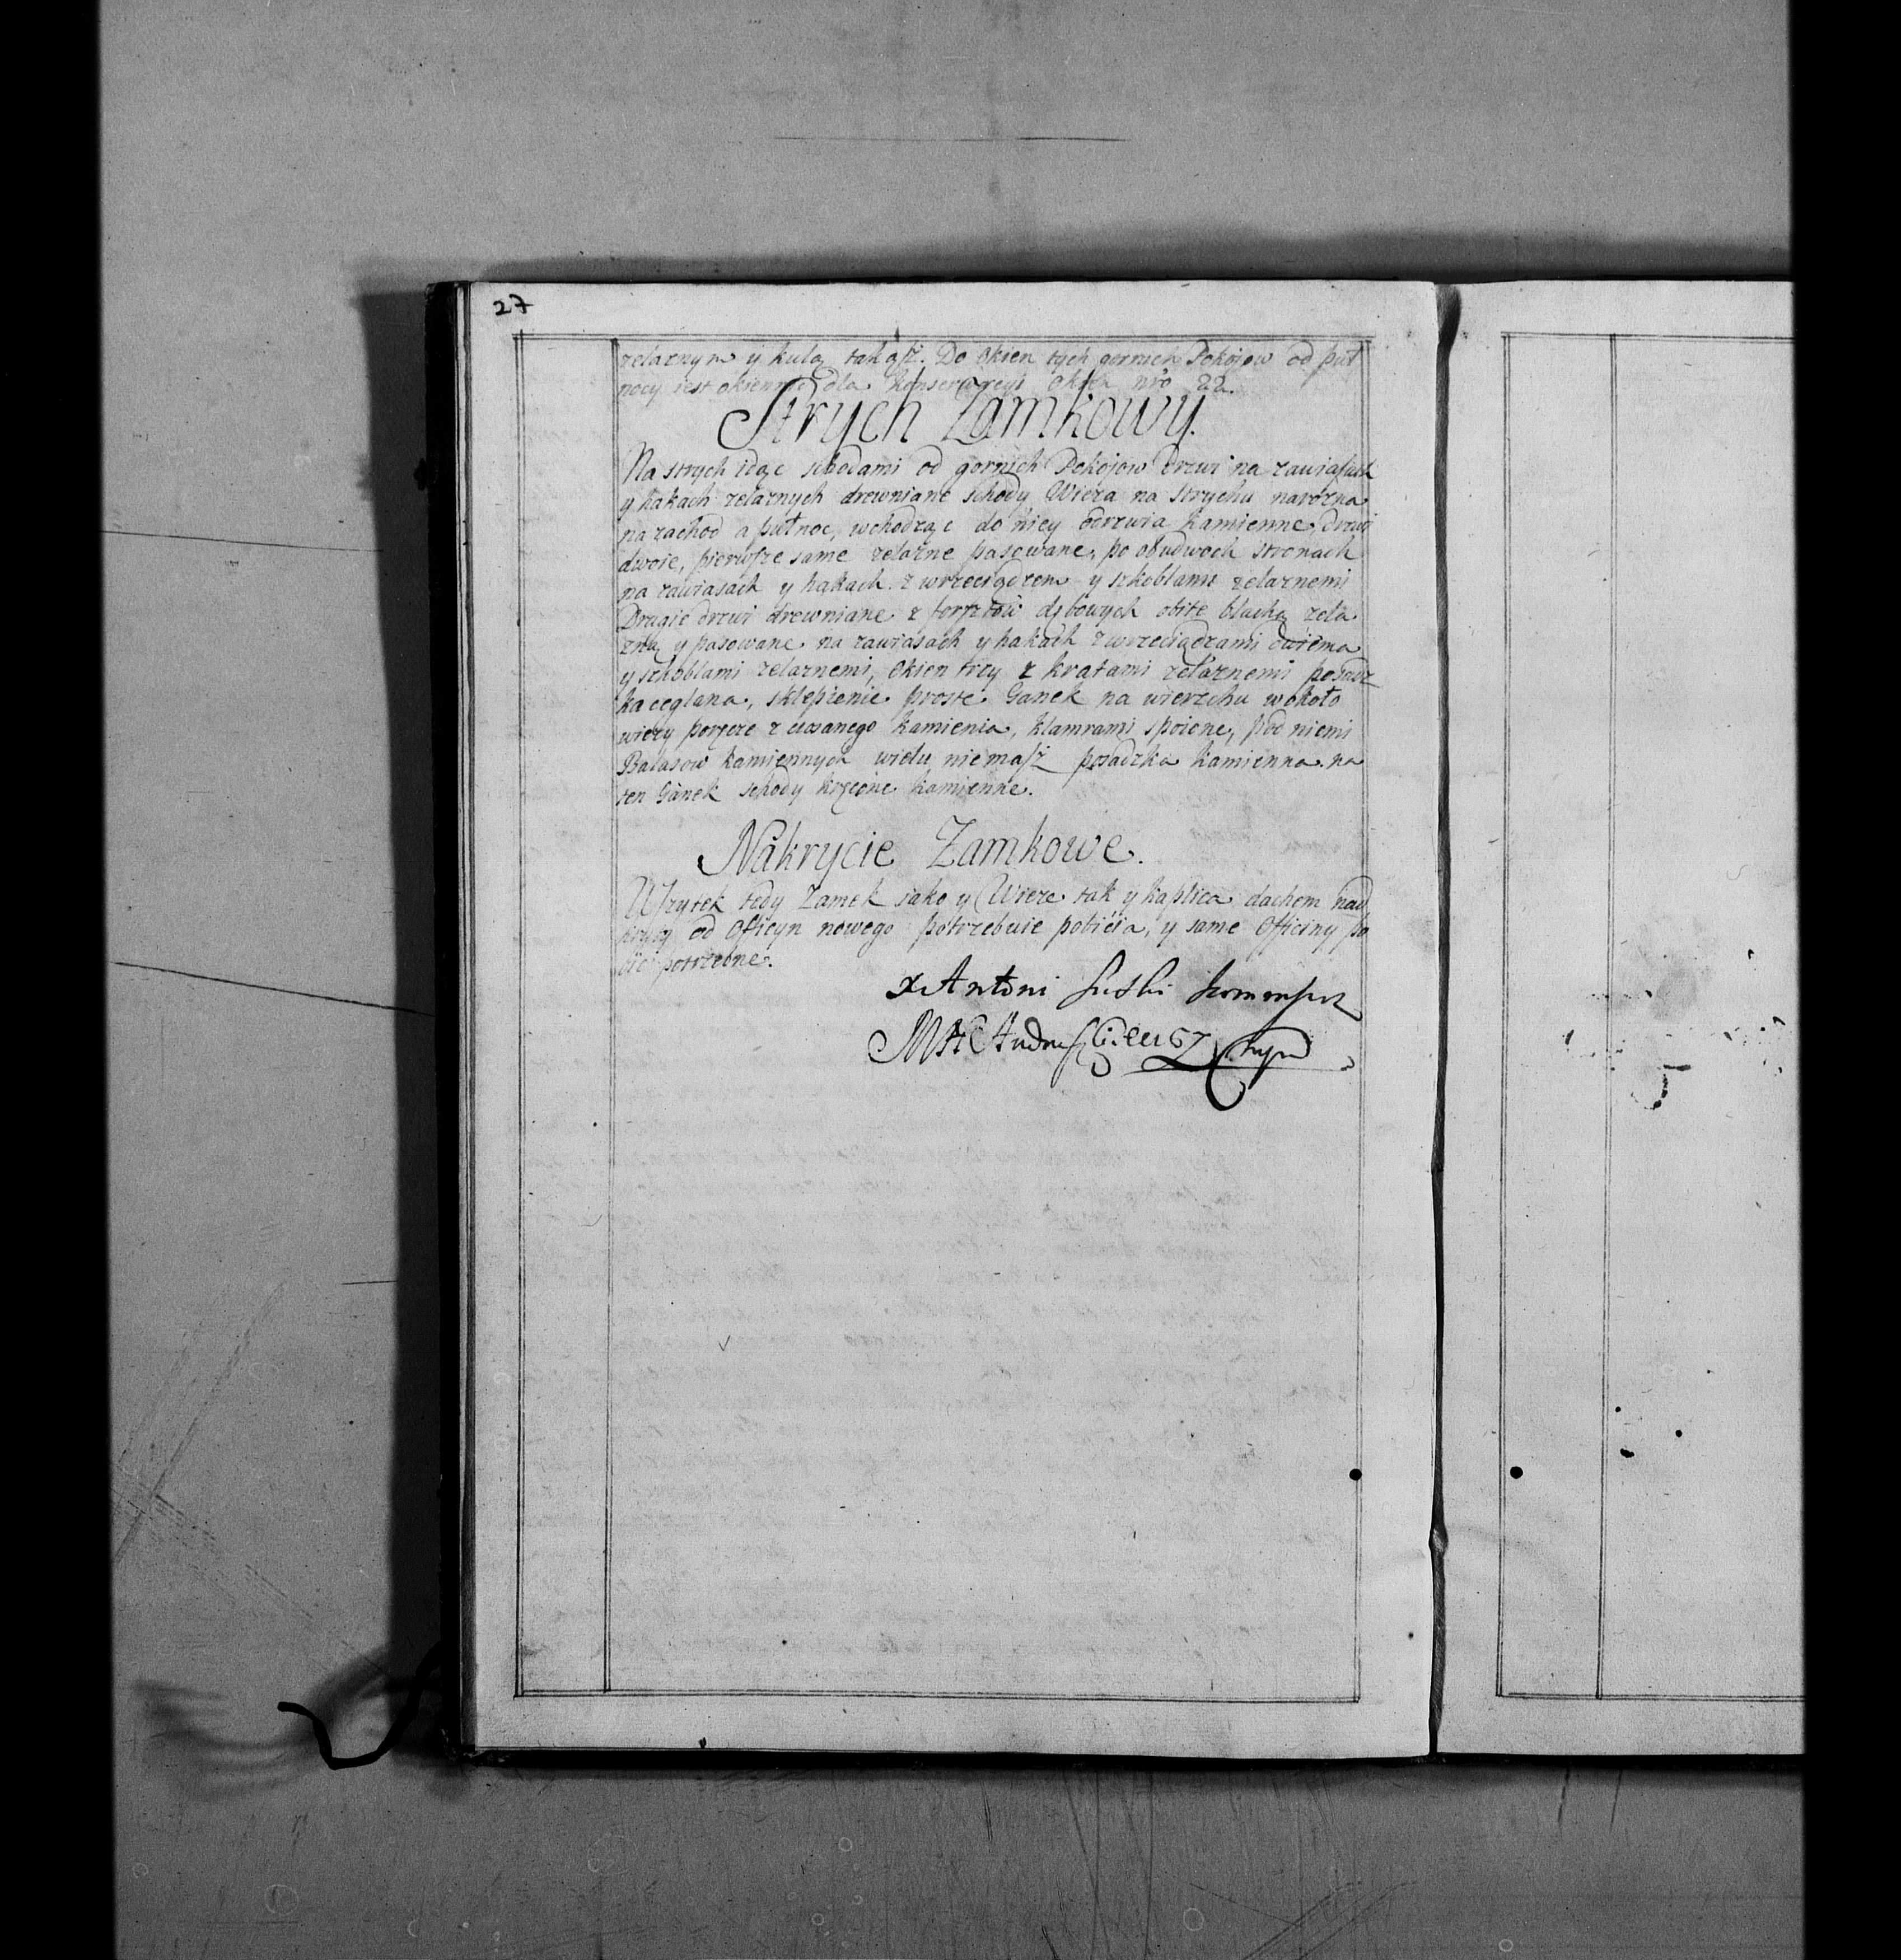 27
zelaznym y kulą takąsz. Do Okien tych gornich Pokoiow od puł
nocy iest okiennic dla konserwacyi Okien nro 22.
Strych Zamkowy.
Na strych idąc schodami od gornich Pokoiow drzwi na zawiasach
y hakach zelaznych drewniane schody Wieza na Strychu narozna
na zachod a pułnoc, wchodząc do niey odrzwia kamienne, drzwi
dwoie, pierwsze same zelazne pasowane, po obudwoch stronach
na zawiasach y hakach z wrzeciądzem y szkoblami zelaznemi
Drugie drzwi drewniane z forsztow dębowych obite blachą zela
zną y pasowane na zawiasach y hakach z wrzeciądzami dwiema
y szkoblami zelaznemi, Okien trzy z kratami zelaznemi posadz
ka ceglana, sklepienie proste Ganek na wierzchu wokoło
wiezy poręcze z ciosanego kamienia, klamrami spoione, pod niemi
Balasow kamiennych wielu niemasz posadzka kamienna na
ten Ganek schody kręcone kamienne.
Nakrycie Zamkowe.
Wszytek tedy Zamek iako y Wieze tak y kaplica dachem nad
kryty od Officyn nowego potrzebuie pobicia, y same Officiny po
bić potrzebne.
X Antoni